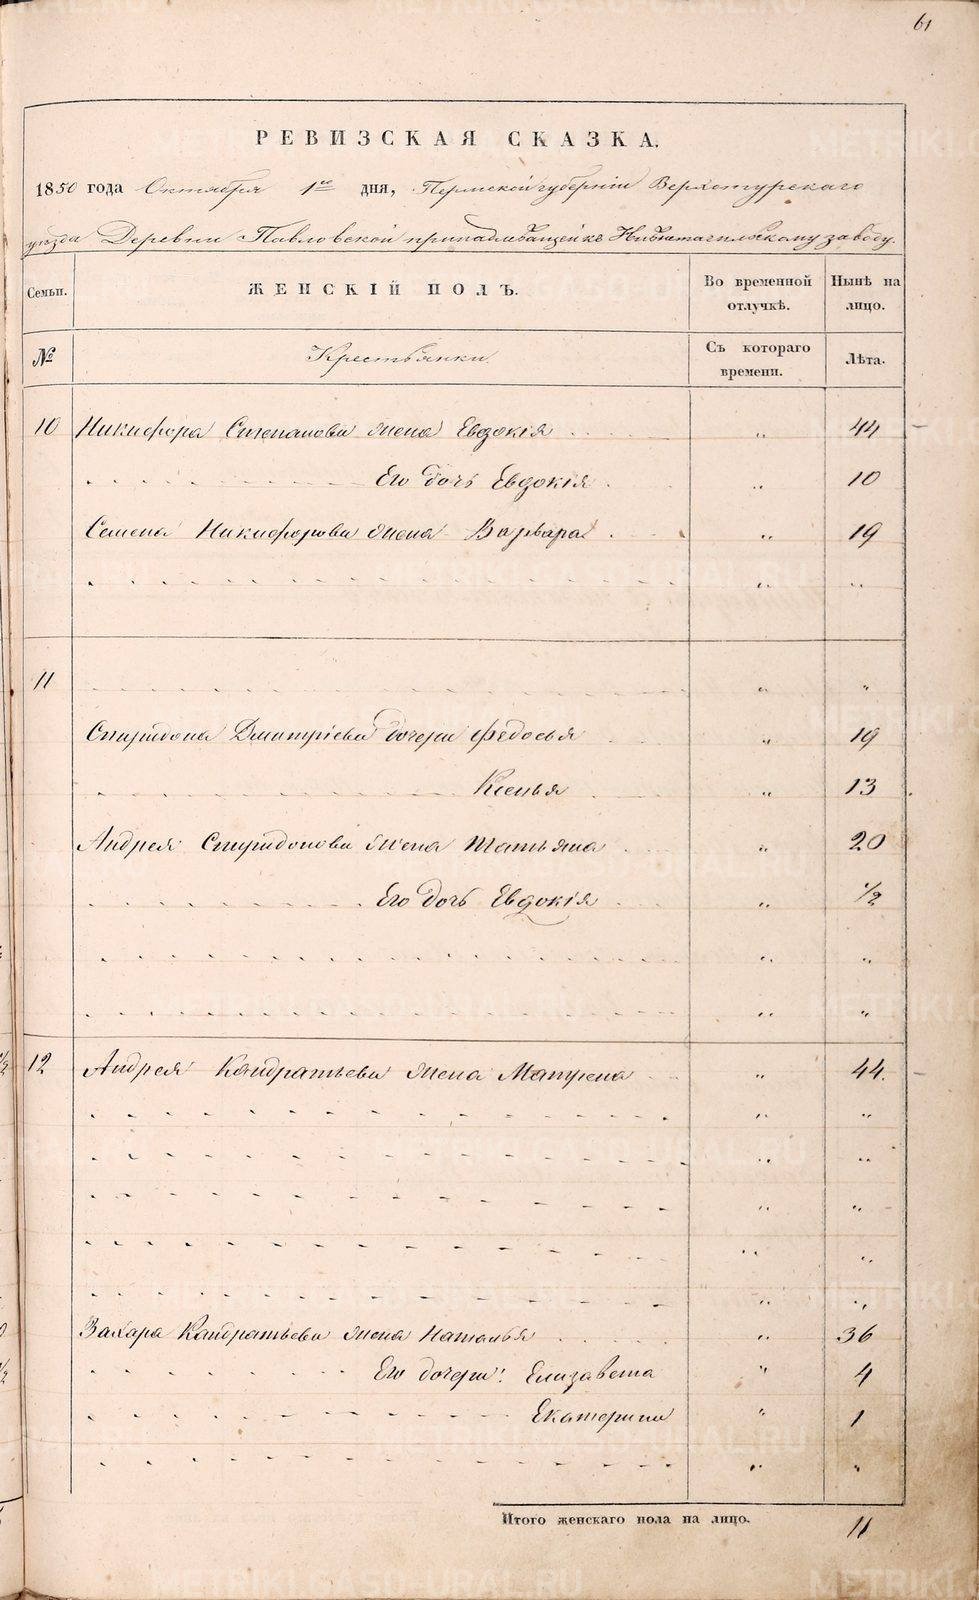 61
РЕВИЗСКАЯ СКАЗКА.
1850 года Октября 1го дня, Пермской губерніи Верхотурскаго
уезда Деревни Павловской принадлежащей къ Нижнетагильскому заводу.
Семьи. ЖЕНСКІЙ ПОЛЪ. Во временной отлучкѣ. Нынѣ на лицо.
№ Крестьянки Съ котораго времени. Лѣта.
10 Никифора Степанова жена Евдокія „ 44
Его дочь Евдокія „ 10
Семена Никифорова жена Варвара „ 19
„ „
11 „ „
Спиридона Дмитріева дочери Федосья „ 19
Ксенья „ 13
Андрея Спиридонова жена Татьяна „ 20
Его дочь Евдокія „ 1/2
„ „
„ „
12 Андрея Кандратьева жена Матрена „ 44.
„ „
„ „
„ „
„ „
„ „
Захара Кандратьева жена Наталья „ 36
Его дочери: Елизавета „ 4
Екатерина „ 1
„ „
Итого женскаго пола на лицо. 11
METRIKI.GASO-URAL.RU